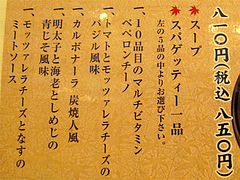 八一〇円(税込 八五〇円)
＊スープ
＊スパゲッティー一品
左の5品の中よりお選び下さい。
一、10品目のマルチビタミン
ペペロンチーノ
一、トマトとモッツァレラチーズの
バジル風味
一、カルボナーラ 炭焼人風
一、明太子と海老としめじの
青じそ風味
一、モッツァレラチーズとなすの
ミートソース